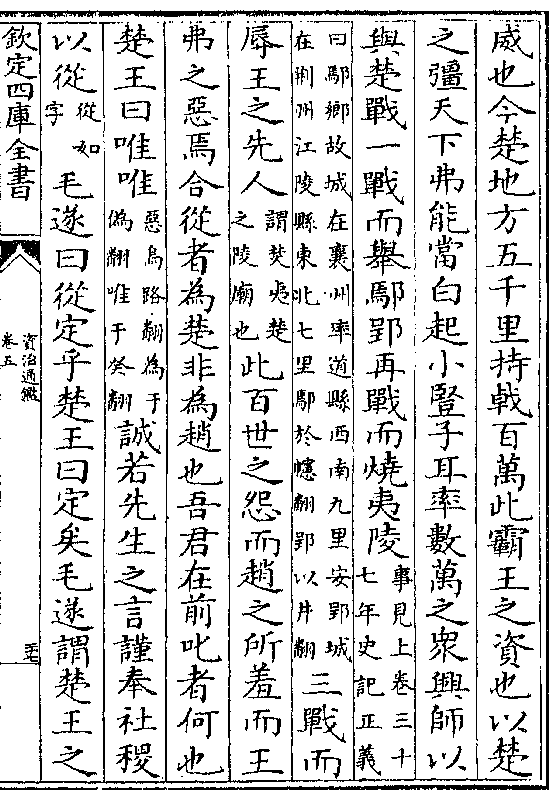 威也今楚地方五千里持㦸百萬此霸王之資也以楚
之彊天下弗能當白起小豎子耳率數萬之衆興師以
與楚戰一戰而舉鄢郢再戰而燒夷陵事見上卷三十七年史記正義
曰鄢鄉故城在襄州率道縣西南九里安郢城在荆州江陵縣東北七里鄢於幰翻郢以井翻三戰而
辱王之先人謂焚夷楚之陵廟也此百世之怨而趙之所羞而王
弗之惡焉合從者為楚非為趙也吾君在前叱者何也
楚王曰唯唯惡烏路翻為于偽翻唯于癸翻誠若先生之言謹奉社稷
以從從如字毛遂曰從定乎楚王曰定矣毛遂謂楚王之
欽定四庫全書
資治通鑑
卷五